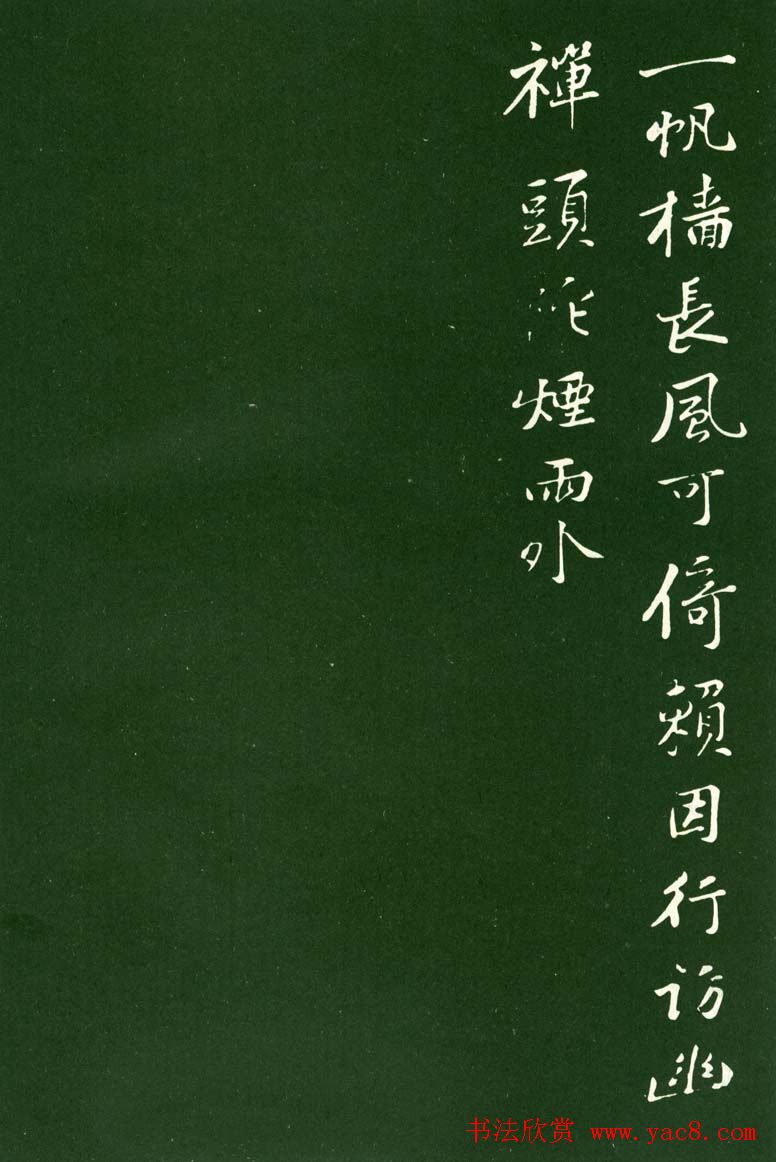 一帆檣長風可倚賴因行訪幽
禪頭陀煙雨外
书法欣赏 www.yac8.com